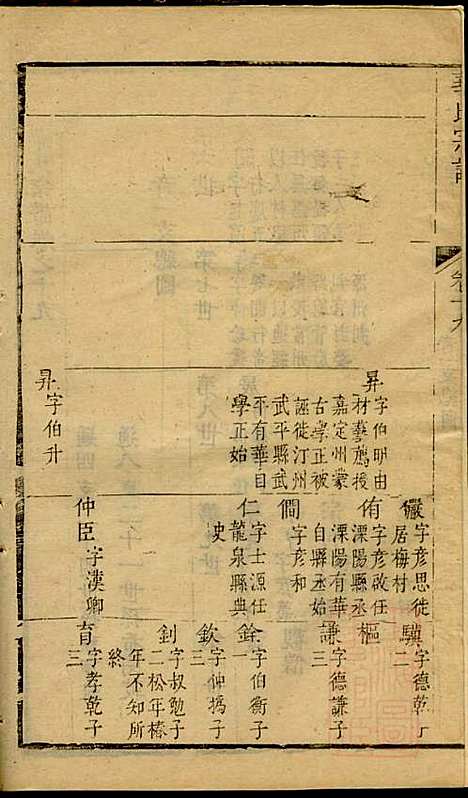 華氏宗譜
卷十九
昇
字伯明由
材藝薦授
嘉定州蒙
古學正被
誣徙汀州
武平縣武
平有華自
學正始
昇
字伯升
儼
字彥思徙
居梅村
侑
字彥政任
溧陽縣丞
溧陽有華
自縣丞始
僩
字彥和
仁
字士源任
龍泉縣典
史
仲臣
字漢卿
字德乾子
二
樞
謙
字德謙子
三
銓
字伯衡子
一
欽
字仲撝子
三
釗
字叔勉子
二松年椿
年不知所
終
育
字孝乾子
三